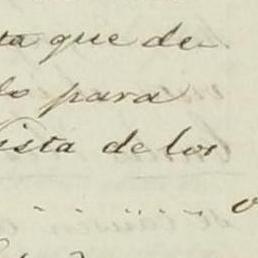 ta que de
lo para
vista de los
o